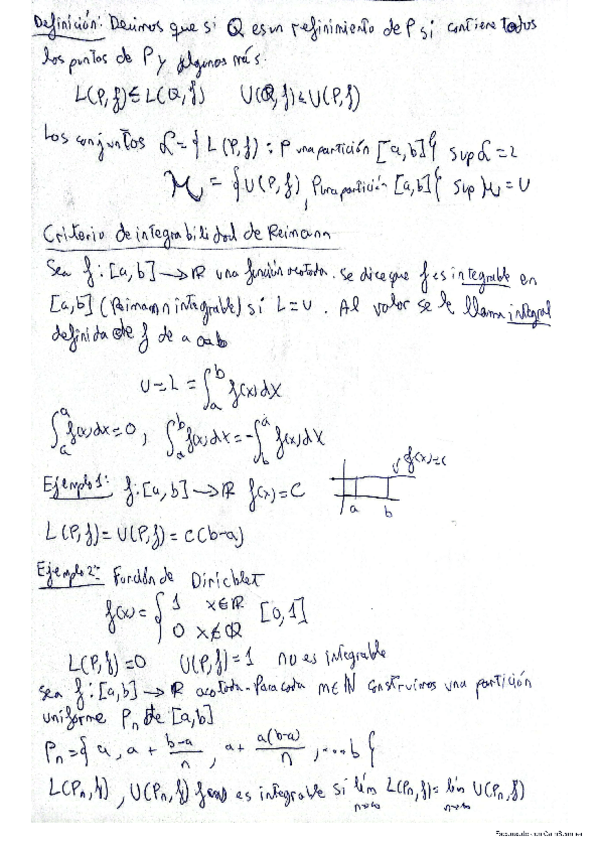 Definición: Decimos que si Q es un refinimiento de P si contiene todos
los puntos de P y algunos más.
L(P,f) ≤ L(Q,f) U(Q,f) ≤ U(P,f)
Los conjuntos L = { L(P,f) : P una partición [a,b] { sup L = L
M = { U(P,f) , P una partición [a,b] { sup M = U
Criterio de integrabilidad de Reimann
Sea f: [a,b] → R una función acotada. Se dice que f es integrable en
[a,b] (Reimann integrable) si L = U. Al valor se le llama integral
definida de f de a a b
U = L = ∫_a^b f(x)dx
∫_a^a f(x)dx = 0, ∫_a^b f(x)dx = -∫_b^a f(x)dx
Ejemplo 1: f: [a,b] → R f(x) = C
f(x) = C
a b
L(P,f) = U(P,f) = c(b-a)
Ejemplo 2: Función de Dirichlet
f(x) = { 1 x∈R
0 x∉Q [0,1]
L(P,f) = 0 U(P,f) = 1 no es integrable
Sea f: [a,b] → R acotada. Para cada m∈N construimos una partición
uniforme Pn de [a,b]
Pn = { a, a + (b-a)/n, a + a(b-a)/n, ... b {
L(Pn,f), U(Pn,f) es integrable si lím n→∞ L(Pn,f) = lím n→∞ U(Pn,f)